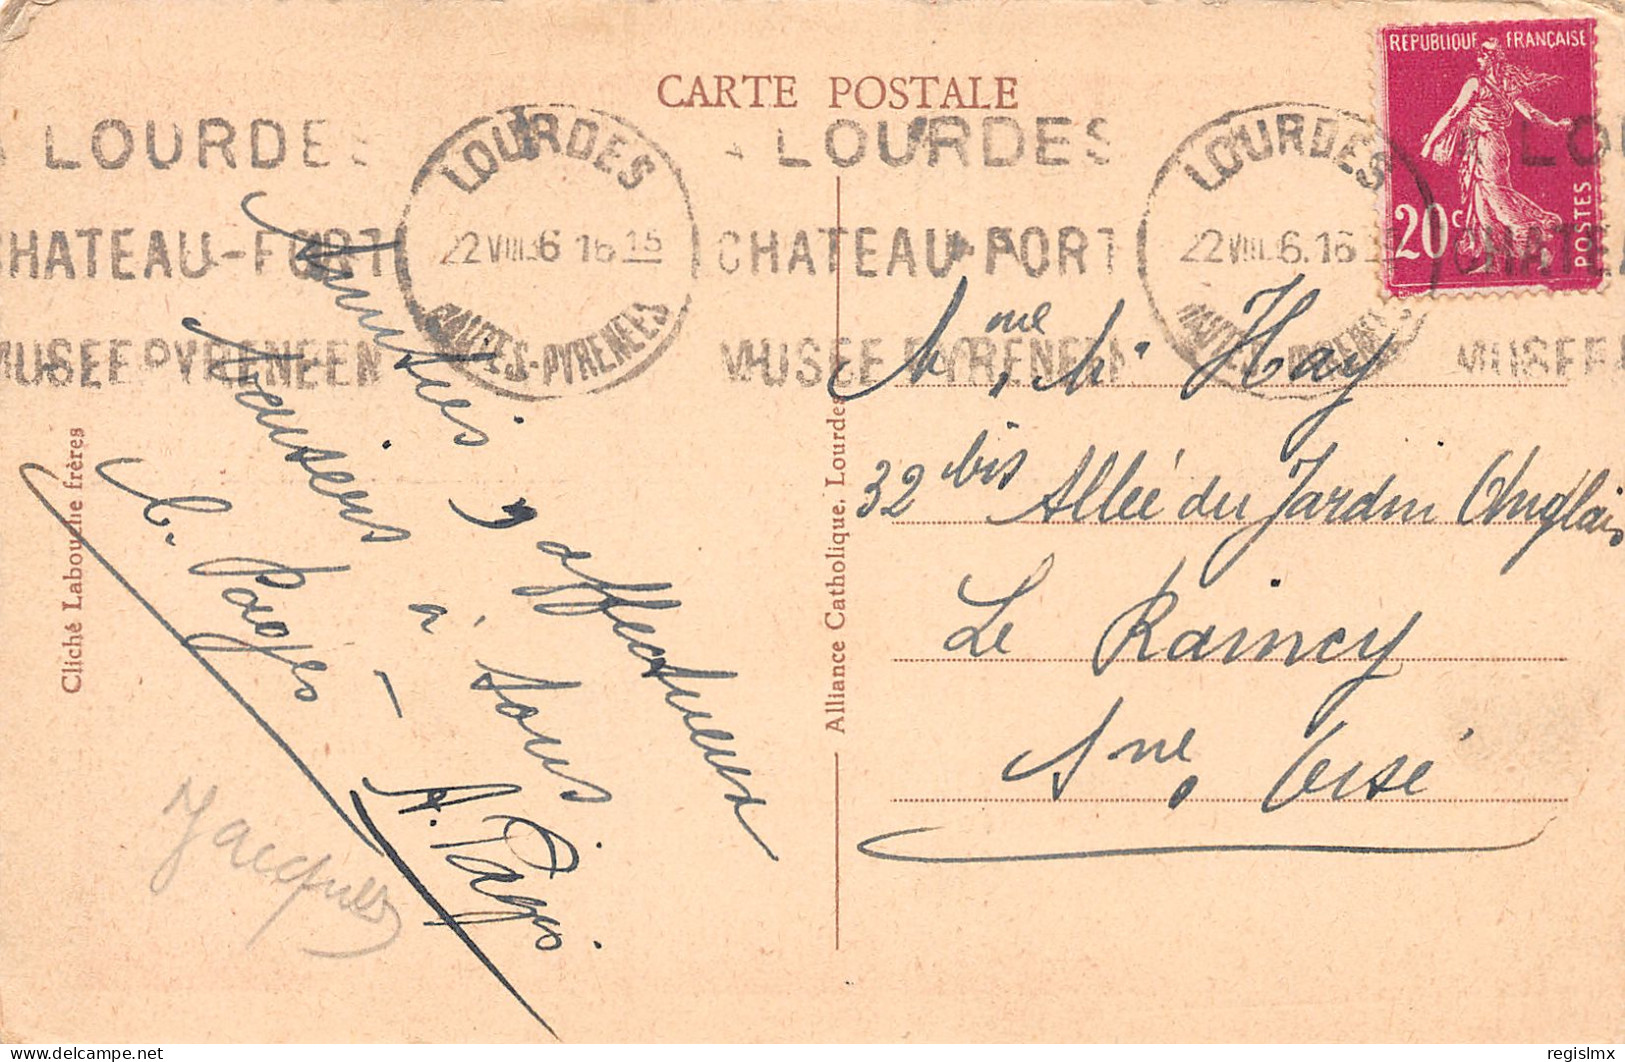 CARTE POSTALE
REPUBLIQUE FRANÇAISE
20c
POSTES
LOURDES
CHATEAU-FORT
MUSEE PYRENEEN
LOURDES
22 VIII 36 16 15
HAUTES-PYRENEES
LOURDES
CHATEAU-FORT
MUSEE PYRENEEN
LOURDES
22 VIII 36 16
HAUTES-PYRENEES
LOU
CHATEA
MUSEE
Amitiés, affectueux
baisers à tous
L. Pagès — A. Pagès
Jacques
Cliché Labouche frères
Alliance Catholique, Lourdes
Mme, Mr Hay
32 bis Allée du Jardin Anglais
Le Raincy
Sne, Oise
regislmx